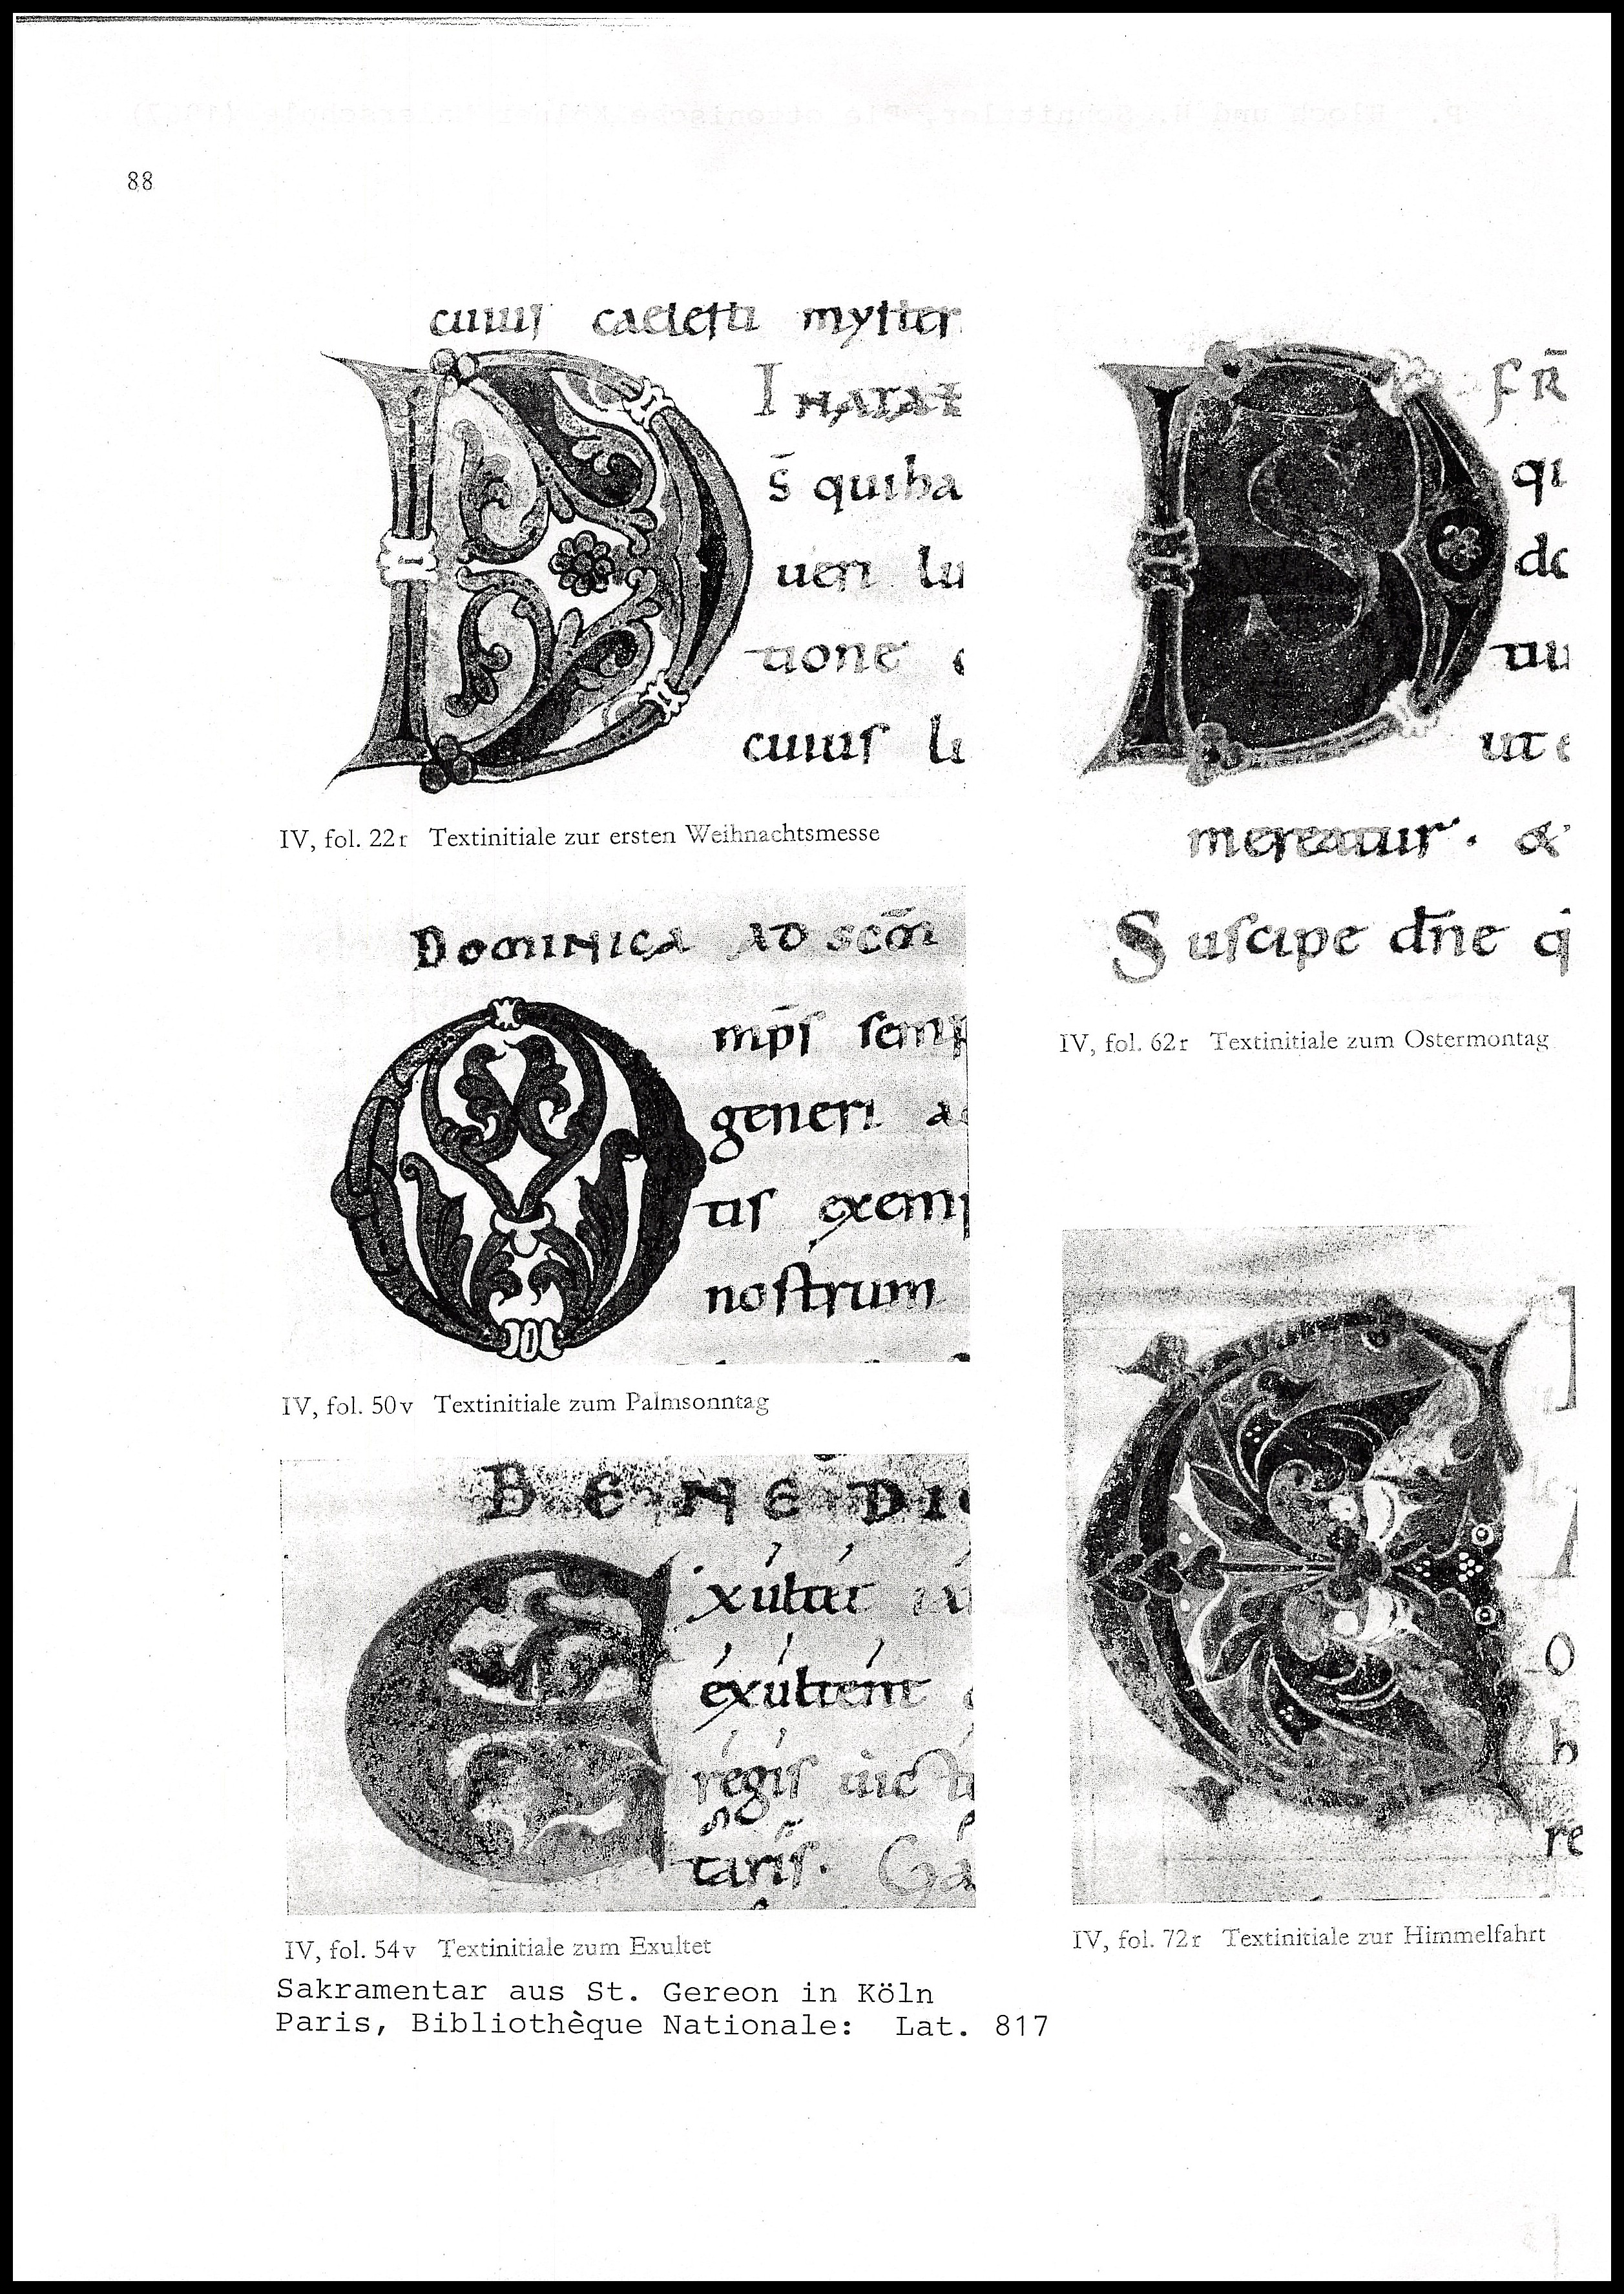 88
cuius caelesti myster
D
IN NATAE
s̄ quiha
ueri lu
tione
cuius lu
IV, fol. 22r Textinitiale zur ersten Weihnachtsmesse
D
FR̄
qi
do
tiu
ut e
mereatur. &
Suscipe dn̄e q
IV, fol. 62r Textinitiale zum Ostermontag
DOMINICA AD SCM̄
O
mp̄s semp
generi
tis exemp
nostrum
IV, fol. 50v Textinitiale zum Palmsonntag
BENEDIC
E
xultet
exultent
regis uicto
taris. Ga
IV, fol. 54v Textinitiale zum Exultet
O
h
re
IV, fol. 72r Textinitiale zur Himmelfahrt
Sakramentar aus St. Gereon in Köln
Paris, Bibliothèque Nationale: Lat. 817